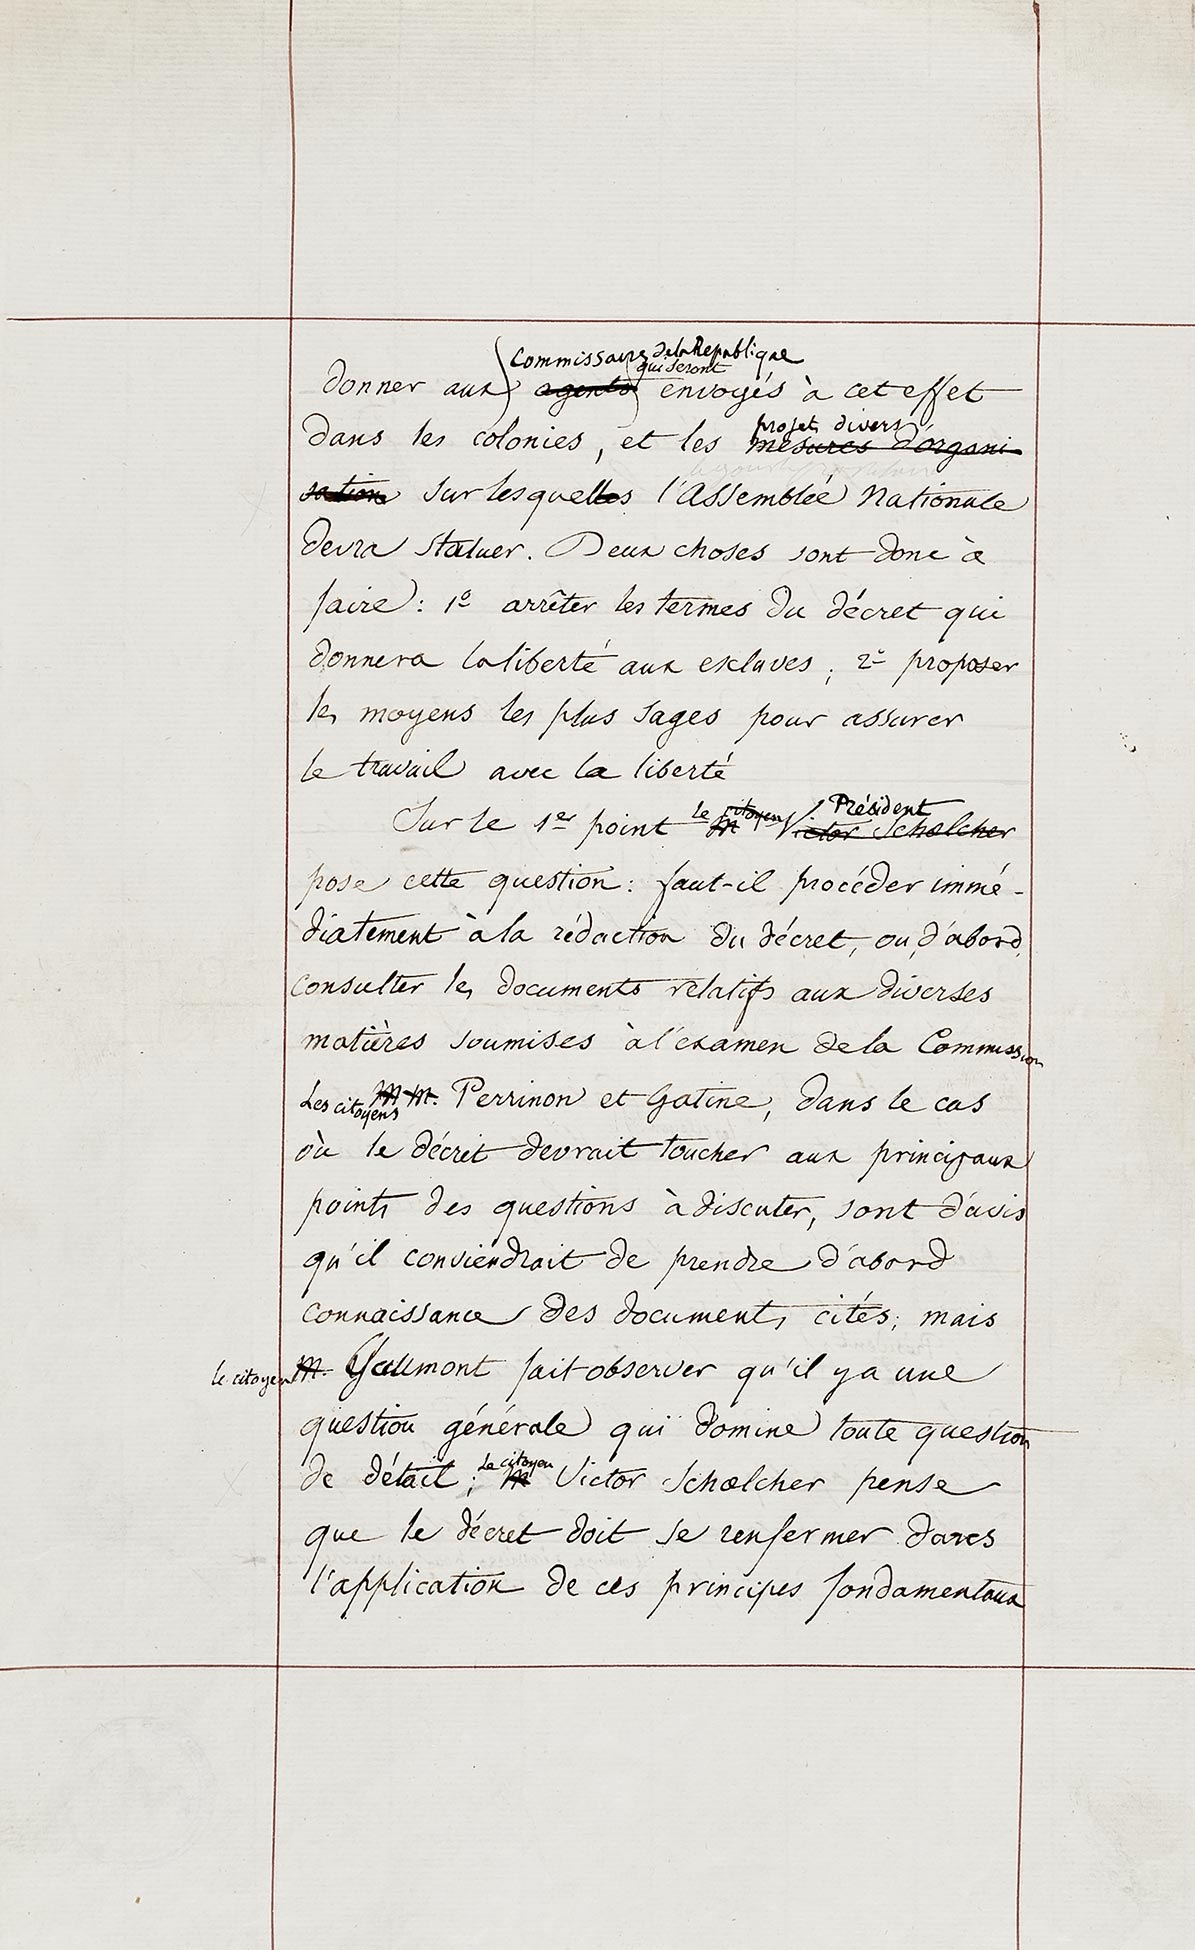 Commissaires de la République
qui seront
donner aux agents envoyés à cet effet
projets divers
dans les colonies, et les mesures d'organi-
sation sur lesquelles l'Assemblée Nationale
devra statuer. Deux choses sont donc à
faire : 1º arrêter les termes du décret qui
donnera la liberté aux esclaves ; 2º proposer
les moyens les plus sages pour assurer
le travail avec la liberté
le citoyen Président
Sur le 1er point M Victor Schœlcher
pose cette question : faut-il procéder immé-
diatement à la rédaction du décret, ou, d'abord,
consulter les documents relatifs aux diverses
matières soumises à l'examen de la Commission
Les citoyens M.M. Perrinon et Gatine, dans le cas
où le décret devrait toucher aux principaux
points des questions à discuter, sont d'avis
qu'il conviendrait de prendre d'abord
connaissance des documents cités ; mais
le citoyen M. Gaumont fait observer qu'il y a une
question générale qui domine toute question
Le citoyen
de détail ; M Victor Schœlcher pense
que le décret doit se renfermer dans
l'application de ces principes fondamentaux